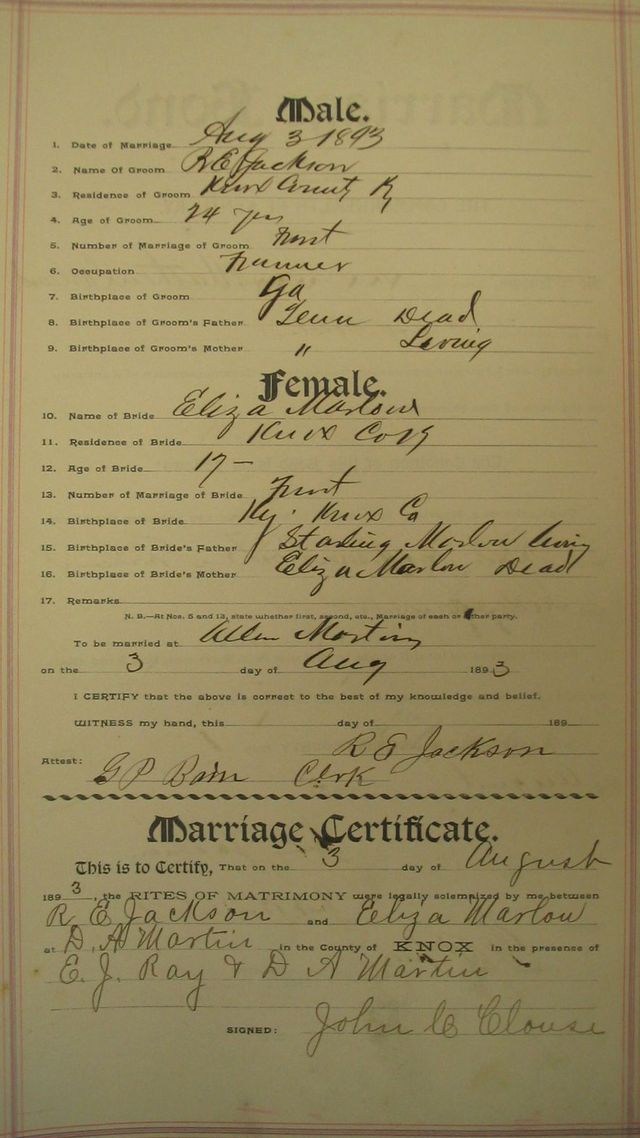 Male.
1. Date of Marriage Aug 3 1893
2. Name Of Groom R E Jackson
3. Residence of Groom Knox County Ky
4. Age of Groom 24 yrs
5. Number of Marriage of Groom First
6. Occupation Farmer
7. Birthplace of Groom Ga
8. Birthplace of Groom's Father Tenn Dead
9. Birthplace of Groom's Mother " Living
Female.
10. Name of Bride Eliza Marlow
11. Residence of Bride Knox Co Ky
12. Age of Bride 17 -
13. Number of Marriage of Bride First
14. Birthplace of Bride Ky. Knox Co
15. Birthplace of Bride's Father Marlow living
16. Birthplace of Bride's Mother Eliza Marlow Dead
17. Remarks
N. B.—At Nos. 5 and 13, state whether first, second, etc., Marriage of each or either party.
To be married at Allen Martins
on the 3 day of Aug 1893
I CERTIFY that the above is correct to the best of my knowledge and belief.
WITNESS my hand, this day of 189
R E Jackson
Attest: G P Bain Clerk
Marriage Certificate.
This is to Certify, That on the 3 day of August
1893, the RITES OF MATRIMONY were legally solemnized by me between
R E Jackson and Eliza Marlow
at D. A Martin in the County of KNOX in the presence of
E. J. Ray & D A Martin
SIGNED: John C Clouse